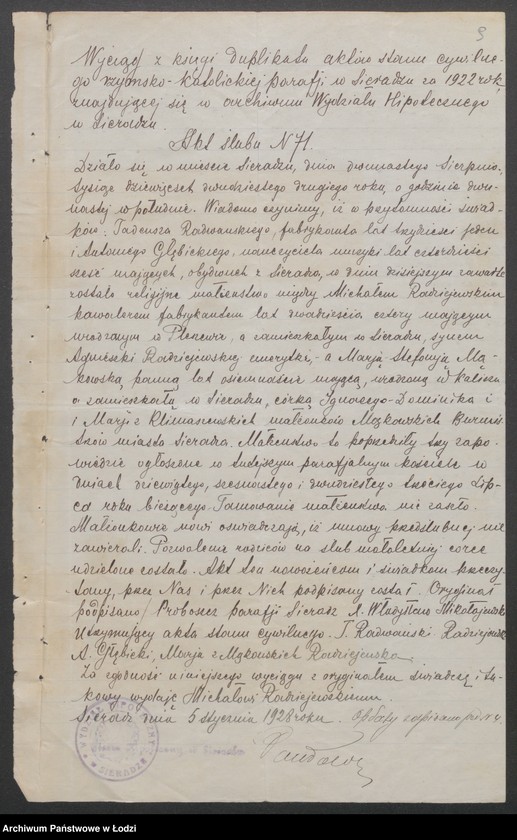 9
Wyciąg z księgi duplikatu aktów stanu cywilne-
go rzymsko-katolickiej parafji w Sieradzu za 1922 rok,
znajdującej się w archiwum Wydziału Hipotecznego
w Sieradzu.
Akt ślubu N 71.
Działo się w mieście Sieradzu, dnia dwunastego Sierpnia,
tysiąc dziewięćset dwudziestego drugiego roku, o godzinie dwu-
nastej w południe. Wiadomo czynimy, iż w przytomności świad-
ków: Tadeusza Radwańskiego, fabrykanta lat trzydzieści jeden
i Antoniego Głębickiego, nauczyciela muzyki lat czterdzieści
sześć mających, obydwóch z Sieradza, w dniu dzisiejszym zawarte
zostało religijne małżeństwo między Michałem Radziejewskim
kawalerem fabrykantem lat dwadzieścia cztery mającym
urodzonym w, a zamieszkałym w Sieradzu, synem
Agnieszki Radziejewskiej emerytki, - a Marją Stefanją Mą-
kowską, panną lat osiemnaście mającą, urodzoną w Kaliszu
a zamieszkałą w Sieradzu, córką Ignacego-Dominika i
i Marji z Klimaszewskich małżonków Mąkowskich Burmi-
strzów miasta Sieradza. Małżeństwo to poprzedziły trzy zapo-
wiedzie ogłoszone w tutejszym parafjalnym kościele w
dniach dziewiątego, szesnastego i dwudziestego trzeciego Lip-
ca roku bieżącego. Tamowanie małżeństwa nie zaszło.
Małżonkowie nowi oświadczają, iż umowy przedślubnej nie
zawierali. Pozwolenie rodziców na ślub małoletniej córce
udzielone zostało. Akt ten nowożeńcom i świadkom przeczy-
tany, przez Nas i przez Nich podpisany został. Oryginał
podpisano / Proboszcz parafji Sieradz X. Władysław Mikołajewski
Utrzymujący akta stanu cywilnego. T. Radwański Radziejewski
A. Głębicki, Marja z Mąkowskich Radziejewska.
Za zgodność niniejszego wyciągu z oryginałem świadczę i ta-
kowy wydaję Michałowi Radziejewskiemu.
Sieradz dnia 5 stycznia 1928 roku. Opłaty
SIERADZ
Archiwum Państwowe w Łodzi